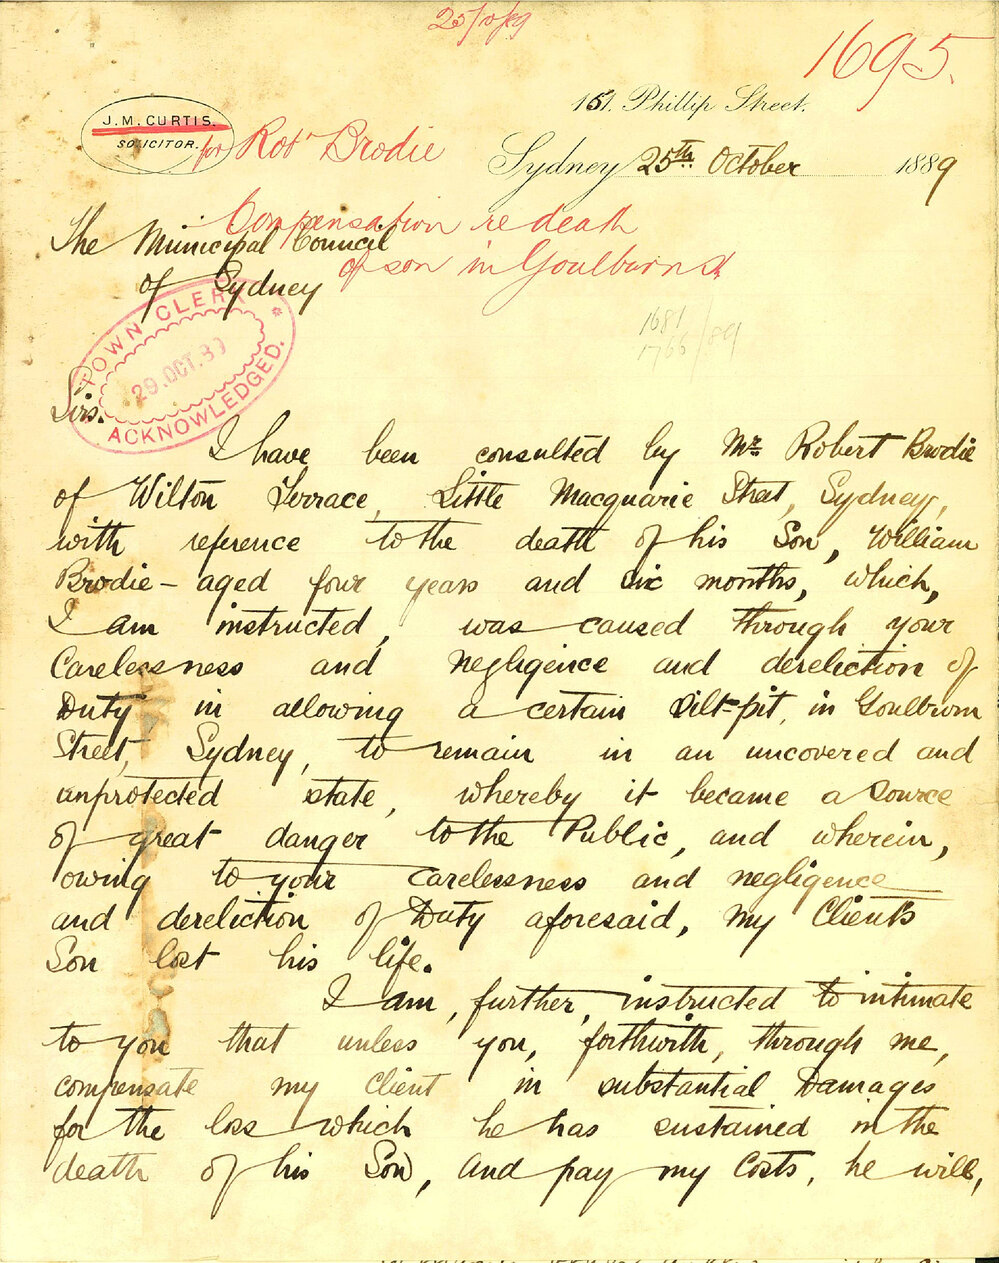 25/10/89
1695.
151. Phillip Street.
J. M. CURTIS.
SOLICITOR.
for Robt Brodie
Sydney 25th October 1889
Compensation re death
of son in Goulburn St
The Municipal Council
of Sydney
1681
1766/89
TOWN CLERK
29.OCT.89
ACKNOWLEDGED.
Sirs.
I have been consulted by Mr Robert Brodie
of Wilton Terrace, Little Macquarie Street, Sydney,
with reference to the death of his Son, William
Brodie – aged four years and six months, which,
I am instructed, was caused through your
Carelessness and Negligence and dereliction of
Duty in allowing a certain Silt-pit, in Goulburn
Street, Sydney, to remain in an uncovered and
unprotected state, whereby it became a source
of great danger to the Public, and wherein,
owing to your carelessness and negligence
and dereliction of Duty aforesaid, my Client's
Son lost his life.
I am, further, instructed to intimate
to you that unless you, forthwith, through me,
compensate my Client in substantial Damages
for the loss which he has sustained in the
death of his Son, and pay my Costs, he will,